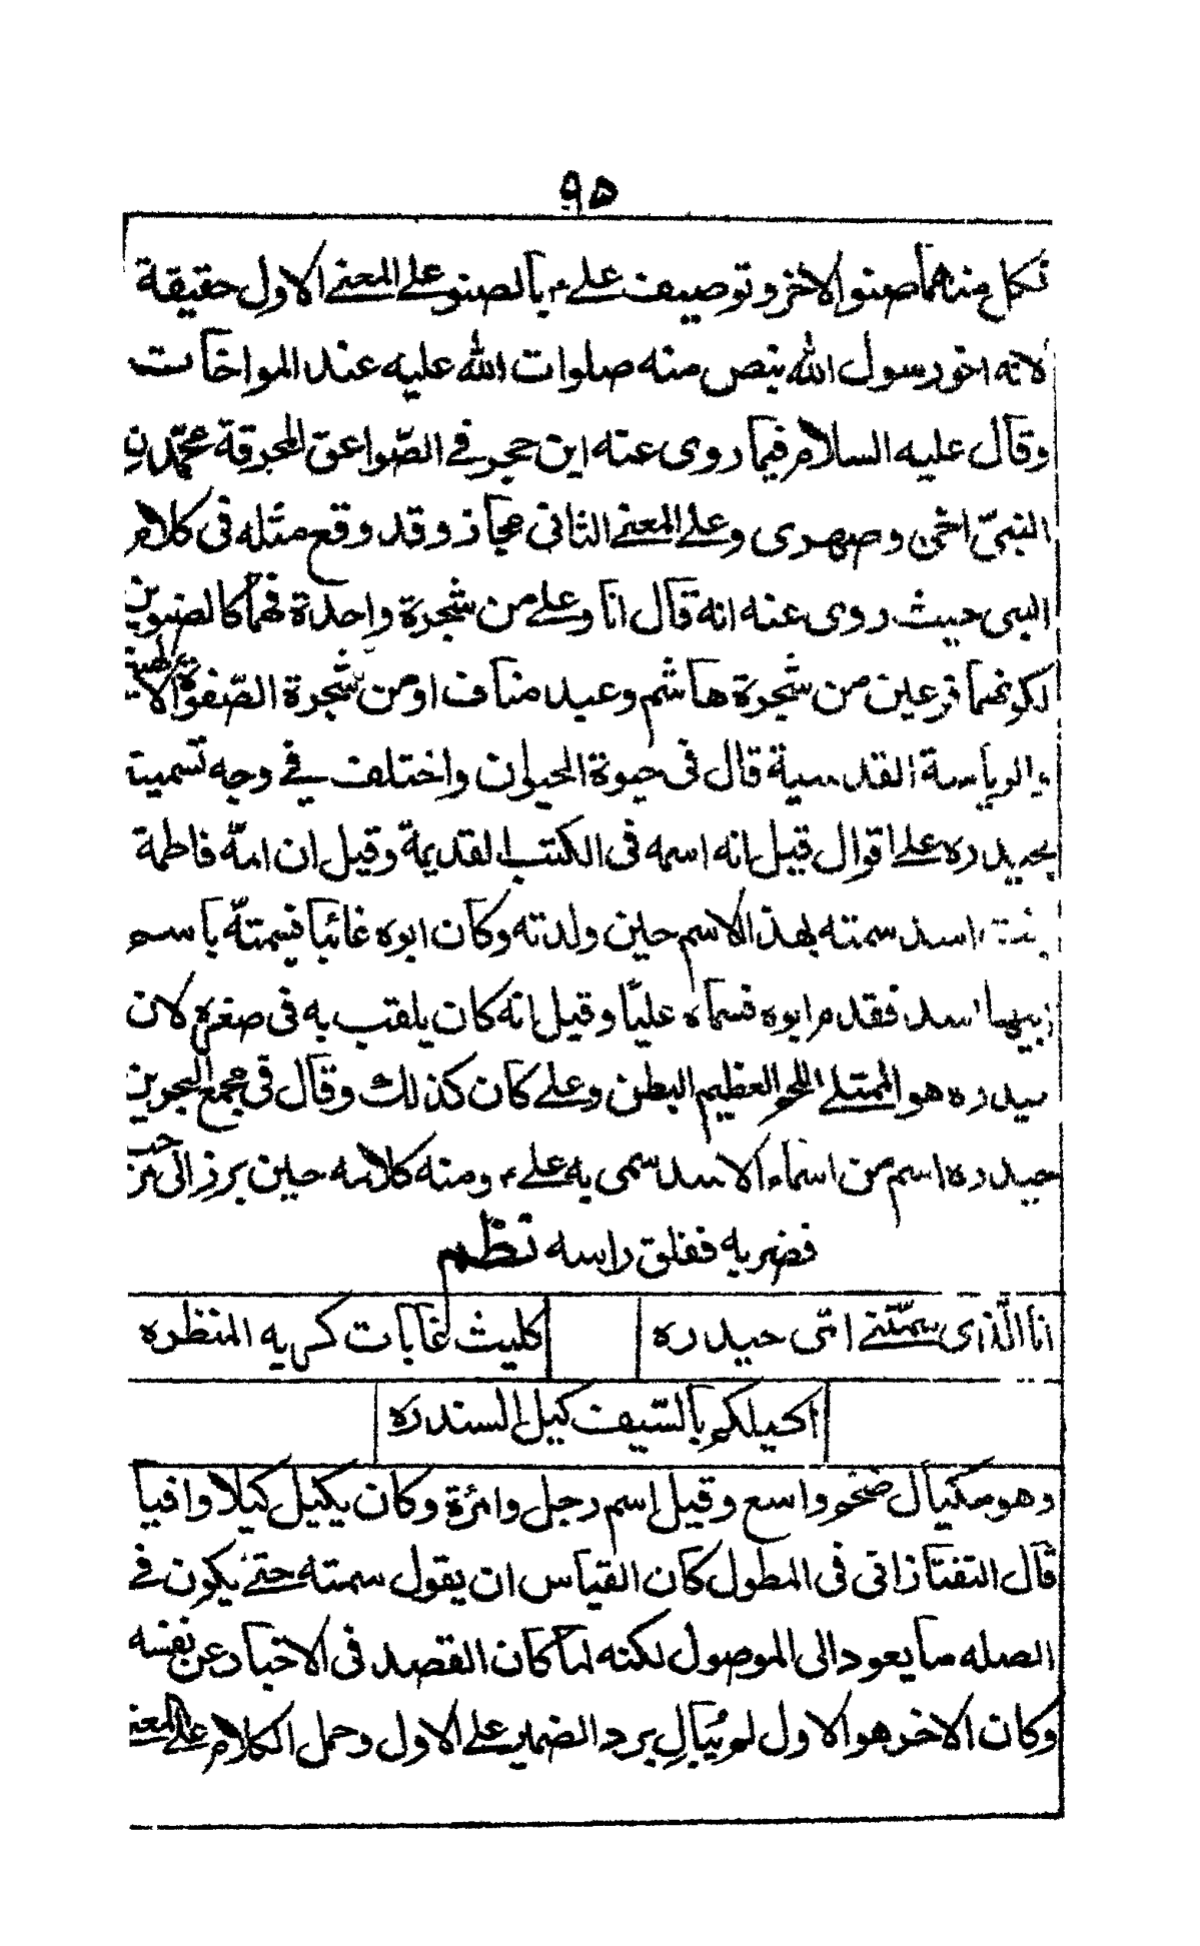 ٩٥
فكل منهما صنو الاخر و توصيف علىؑ بالصنو على المعنى الاول حقيقة
لانه اخو رسول الله بنص منه صلوات الله عليه عند المواخات
وقال عليه السلام فيما روى عنه ابن حجر فى الصّواعق المحرقة محمّدن
النبىّ اخى وصهرى وعلى المعنى الثانى مجاز وقد وقع مثله فى كلام
النبى حيث روى عنه انه قال انا وعلى من شجرة واحدة فهما كالصنوين
لكونهما فرعين من شجرة هاشم وعبد مناف او من شجرة الصّفوة
والرياسة القدسية قال فى حيوة الحيوان واختلف فى وجه تسميته
بحيدره على اقوال قيل انه اسمه فى الكتب القديمة وقيل ان امّه فاطمة
بنت اسد سمته بهذا الاسم حين ولدته وكان ابوه غائبا فسمتّه باسم
ابيها اسد فقدم ابوه فسماه عليّا وقيل انه كان يلقب به فى صغره لان
حيدره هو الممتلى اللحم العظيم البطن وعلى كان كذلك وقال فى مجمع البحرين
حيدره اسم من اسماء الاسد سمى به علىؑ ومنه كلامه حين برز الى مرحب
فضربه ففلق راسه نظم
انا الّذى سمّتنى امّى حيدره
كليث غابات كريه المنظره
اكيلكم بالسّيف كيل السندره
وهو مكيال ضخم واسع وقيل اسم رجل وامرءة وكان يكيل كيلا وافيا
قال التفتازانى فى المطول كان القياس ان يقول سمته حتى يكون فى
الصله ما يعود الى الموصول لكنه لما كان القصد فى الاخبار عن نفسه
وكان الاخر هو الاول لم يُبالِ برد الضمير على الاول وحمل الكلام على المعنى